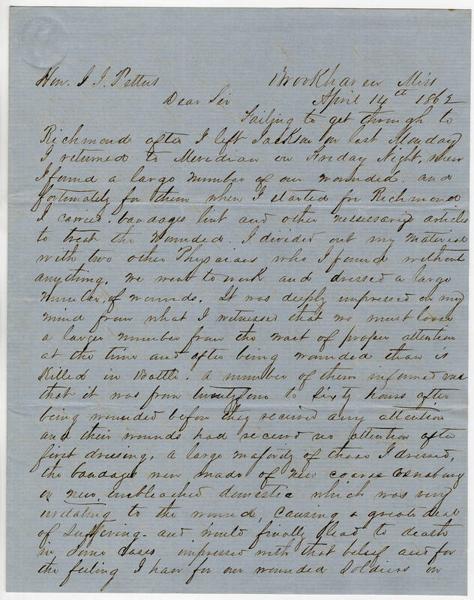 Hon. J. J. Pettus Brookhaven Miss
Dear Sir April 14th 1862
Failing to get through to
Richmond after I left Jackson on last Monday
I returned to Meridian on Friday Night, where
I found a large number of our wounded. and
fortunately for them when I started for Richmond
I carried bandages lint and other necessary articles
to treat the wounded I divided out my material
with two other Physicians who I found without
anything. we went to work and dressed a large
number, of wounds. It was deeply impressed on my
mind from what I witnessed that we must loose
a larger number from the want of proper attention
at the time and after being wounded than is
killed in Battle. a number of them informed me
that it was from twentyfour to Sixty hours after
being wounded before they received any attention
and their wounds had received no attention after
first dressing. a large majority of those I dressed,
the bandages were made of new coarse Osnaburg
or new, unbleached domestic which was very
irritating to the wound, causing a great deal
of suffering. and would finally lead to death
in some cases. impressed with that belief and for
the feeling I have for our wounded Soldiers on